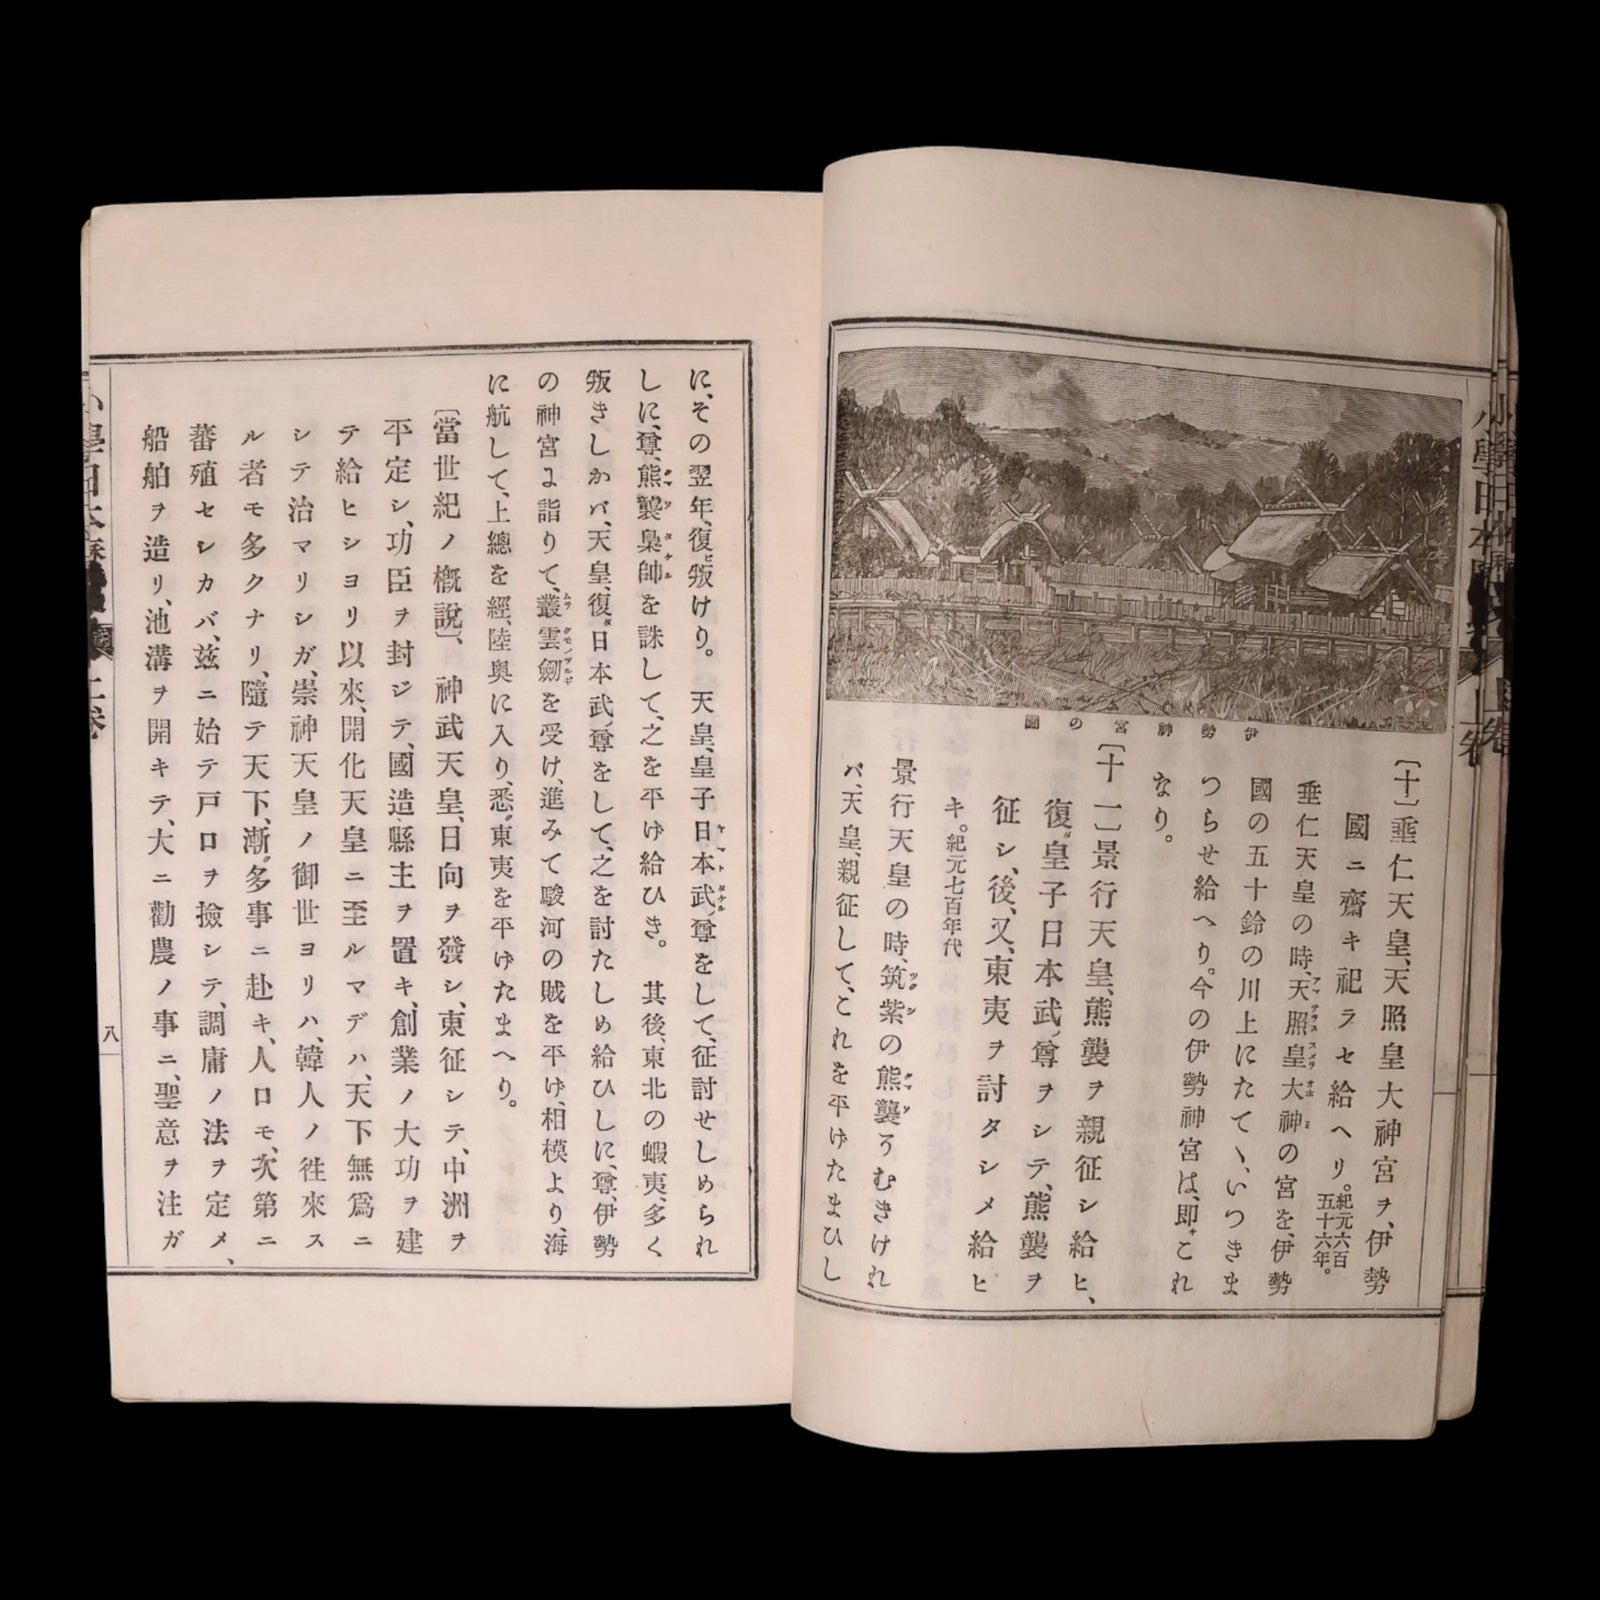 伊勢神宮の圖
〔十〕垂仁天皇、天照皇大神宮ヲ、伊勢
國ニ齋キ祀ラセ給ヘリ。紀元六百五十六年。
垂仁天皇の時、天照皇大神の宮を、伊勢
國の五十鈴の川上にたてゝ、いつきま
つらせ給へり。今の伊勢神宮は、即チこれ
なり。
〔十一〕景行天皇、熊襲ヲ親征シ給ヒ、
復タ皇子日本武ノ尊ヲシテ、熊襲ヲ
征シ、後、又、東夷ヲ討タシメ給ヒ
キ。紀元七百年代
景行天皇の時、筑紫の熊襲そむきけれ
バ、天皇、親征して、これを平げたまひし
に、その翌年、復ビ叛けり。天皇、皇子日本武ノ尊をして、征討せしめられ
しに、尊、熊襲梟帥を誅して、之を平げ給ひき。其後、東北の蝦夷、多く
叛きしかバ、天皇、復タ日本武ノ尊をして、之を討たしめ給ひしに、尊、伊勢
の神宮に詣りて、叢雲劔を受け、進みて駿河の賊を平げ、相模より、海
に航して、上總を經、陸奥に入り、悉ク東夷を平げたまへり。
〔當世紀ノ概說〕、神武天皇、日向ヲ發シ、東征シテ、中洲ヲ
平定シ、功臣ヲ封ジテ、國造縣主ヲ置キ、創業ノ大功ヲ建
テ給ヒシヨリ以來、開化天皇ニ至ルマデハ、天下無爲ニ
シテ治マリシガ、崇神天皇ノ御世ヨリハ、韓人ノ徃來ス
ル者モ多クナリ、隨テ天下、漸ク多事ニ赴キ、人口モ、次第ニ
蕃殖セシカバ、玆ニ始テ戸口ヲ撿シテ、調庸ノ法ヲ定メ、
船舶ヲ造リ、池溝ヲ開キテ、大ニ勸農ノ事ニ、聖意ヲ注ガ
八